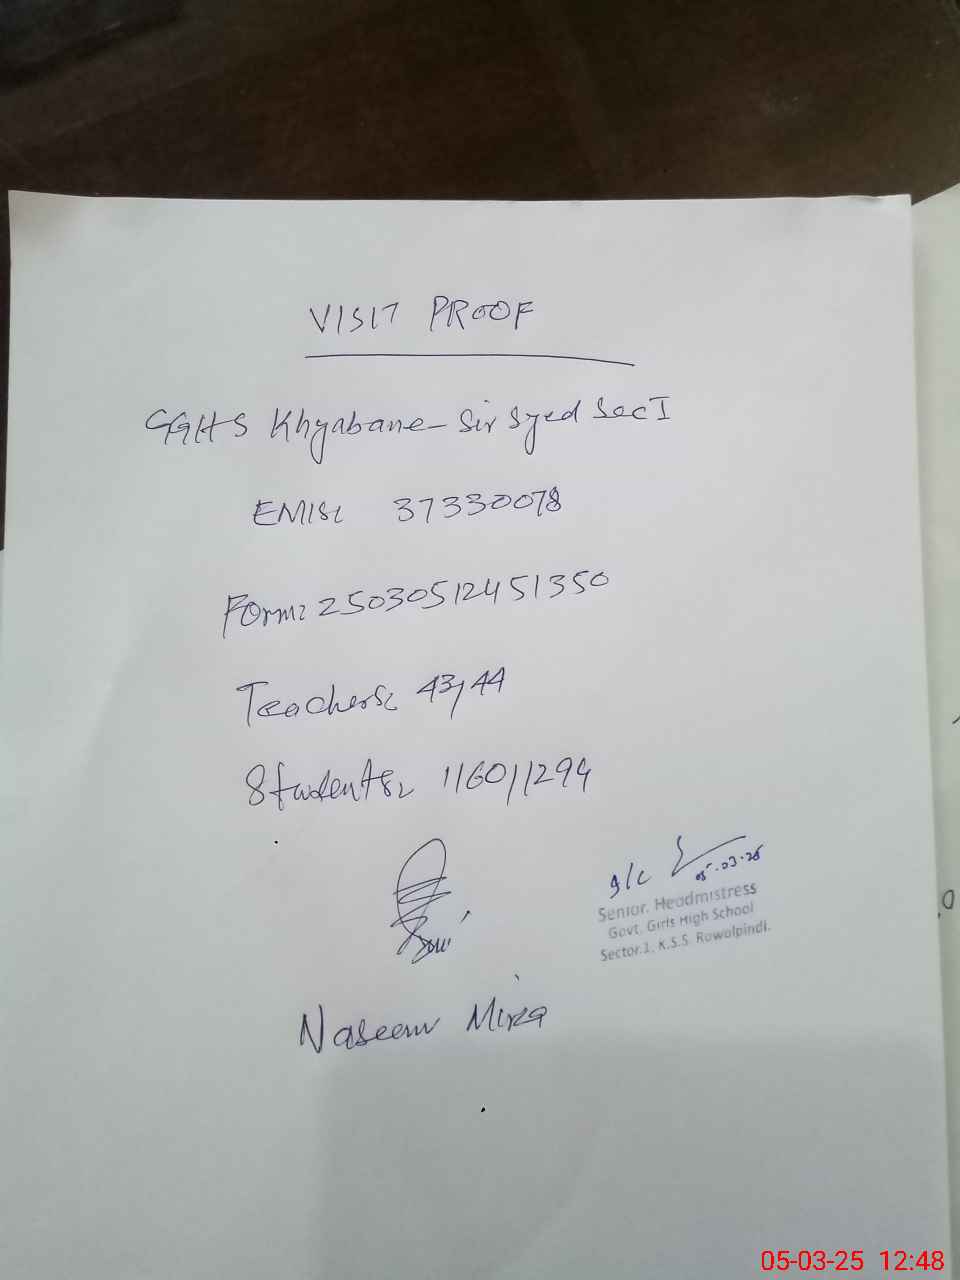 VISIT PROOF
GGHS Khyabane-Sir Syed Sec I
EMIS: 37330078
Form: 25030512451350
Teachers: 43/44
Students: 1160/1294
I/C
05.03.25
Senior. Headmistress
Govt. Girls High School
Sector.1, K.S.S. Rawalpindi.
Naseem Mirza
05-03-25 12:48